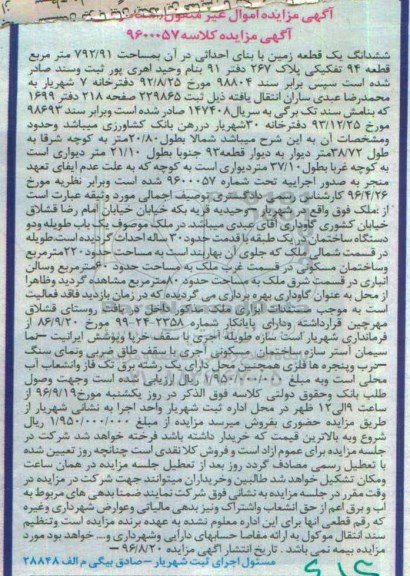 آگهی مزایده اموال غیر منقول
آگهی مزایده کلاسه ۹۶۰۰۰۵۷
ششدانگ یک قطعه زمین با بنای احداثی در آن بمساحت ۷۹۲/۹۱ متر مربع
قطعه ۹۴ تفکیکی پلاک ۲۶۷ دفتر ۹۱ بنام وحید اهری پور ثبت وسند صادر
شده است سپس برابر سند ۹۸۸۰۴ مورخ ۹۲/۸/۲۵ دفترخانه ۷ شهریار به
محمدرضا عبدی ساران انتقال یافته ذیل ثبت ۲۲۹۸۶۵ صفحه ۲۱۸ دفتر ۱۶۹۹
که بنامش سند تک برگی به سریال ۱۴۷۴۰۸ صادر شده است وبرابر سند ۹۸۶۹۳
مورخ ۹۳/۱۲/۲۵ دفترخانه ۳۰ شهریار دررهن بانک کشاورزی میباشد وحدود
ومشخصات آن به این شرح میباشد شمالا بطول ۲۰/۸۰ متر به کوچه شرقا به
طول ۳۸/۷۲ متر دیوار به دیوار قطعه ۹۳ جنوبا بطول ۲۱/۱۰ متر دیواری است
به کوچه غربا بطول ۳۷/۱۰ متردیواری است به کوچه که به علت عدم ایفای تعهد
منجر به صدور اجراییه تحت شماره ۹۶۰۰۰۵۷ شده است وبرابر نظریه مورخ
۹۶/۴/۲۶ کارشناس رسمی دادگستری توصیف اجمالی مورد وثیقه عبارت است
از :ملک فوق واقع در شهریار – وحیدیه قریه بکه خیابان خیابان امام رضا قشلاق
خیابان کشوری گاوداری آقای عبدی میباشد در ملک موصوف یک باب طویله ودو
دستگاه ساختمان در یک طبقه با قدمت حدود ۳۰ ساله احداث گردیده است.طویله
در قسمت شمالی ملک که جلوی آن بهاربند است به مساحت حدود ۲۲۰ مترمربع
وساختمان مسکونی در قسمت غرب ملک به مساحت حدود ۶۰ مترمربع وسالن
انباری در قسمت شرق ملک به مساحت حدود ۸۰ مترمربع مشاهده گردید وظاهرا
از محل به عنوان گاوداری بهره برداری می گردیده که در زمان بازدید فاقد فعالیت
است به موجب مستندات ابرازی ملک مذکور داخل در بافت روستای قشلاق
مهرچین قرارداشته ودارای پایانکار شماره ۲۳۵۸-۲۴-۹۹ مورخ ۸۶/۹/۲۰ از
فرمانداری شهریار است سازه طویله آجری با سقف خرپا وپوشش ایرانیت –نما
سیمان آستر سازه ساختمان مسکونی آجری با سقف طاق ضربی ونمای سنگ
–درب وپنجره ها فلزی همچنین محل دارای یک رشته برق تک فاز وانشعاب آب
محلی است وبه مبلغ ۱/۹۵۰/۰۰۰/۰۰۰ ریال ارزیابی شده است وجهت وصول
طلب بانک وحقوق دولتی کلاسه فوق الذکر در روز یکشنبه مورخ ۹۶/۹/۱۹ از
ساعت ۹ الی ۱۲ ظهر در محل اداره ثبت شهریار واحد اجرا به نشانی شهریار از
طریق مزایده حضوری بفروش میرسد مزایده از مبلغ ۱/۹۵۰/۰۰۰/۰۰۰ ریال
شروع وبه بالاترین قیمت که خریدار داشته باشد فرخته خواهد شد شرکت در
جلسه مزایده برای عموم ازاد است و فروش کلا نقدی است چنانچه روز تعیین شده
با تعطیل رسمی مصادف گردد روز بعد از تعطیل جلسه مزایده در همان ساعت
ومکان تشکیل خواهد شد طالبین وخریداران میتوانند جهت شرکت در مزایده در
وقت مقرر در جلسه مزایده به نشانی فوق شرکت نمایند ضمنا بدهی های مربوط به
آب و برق اعم از حق انشعاب واشتراک ونیز بدهی مالیاتی وعوارض شهرداری وغیره
که رقم قطعی انها برای این اداره معلوم نشده به عهده برنده مزایده است وتنظیم
سند انتقال موکول به ارائه مفاصا حسابهای دارایی وشهرداری و... خواهد بود مورد
مزایده بیمه نمی باشد . تاریخ انتشار اگهی مزایده ۹۶/۸/۲۰ –
مسئول اجرای ثبت شهریار –صادق بیگی م الف ۲۸۸۴۸